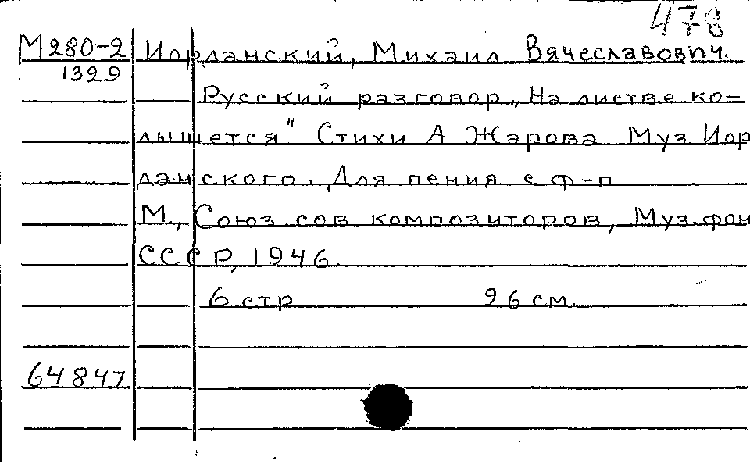 478
М280-2 Иорданский, Михаил Вячеславович.
1329
Русский разговор. „На листве ко-
лышется" Стихи А Жарова Муз Иор
данского. Для пения с ф-п
М., Союз сов композиторов, Музфон
СССР, 1946.
6 стр 96 см.
64847